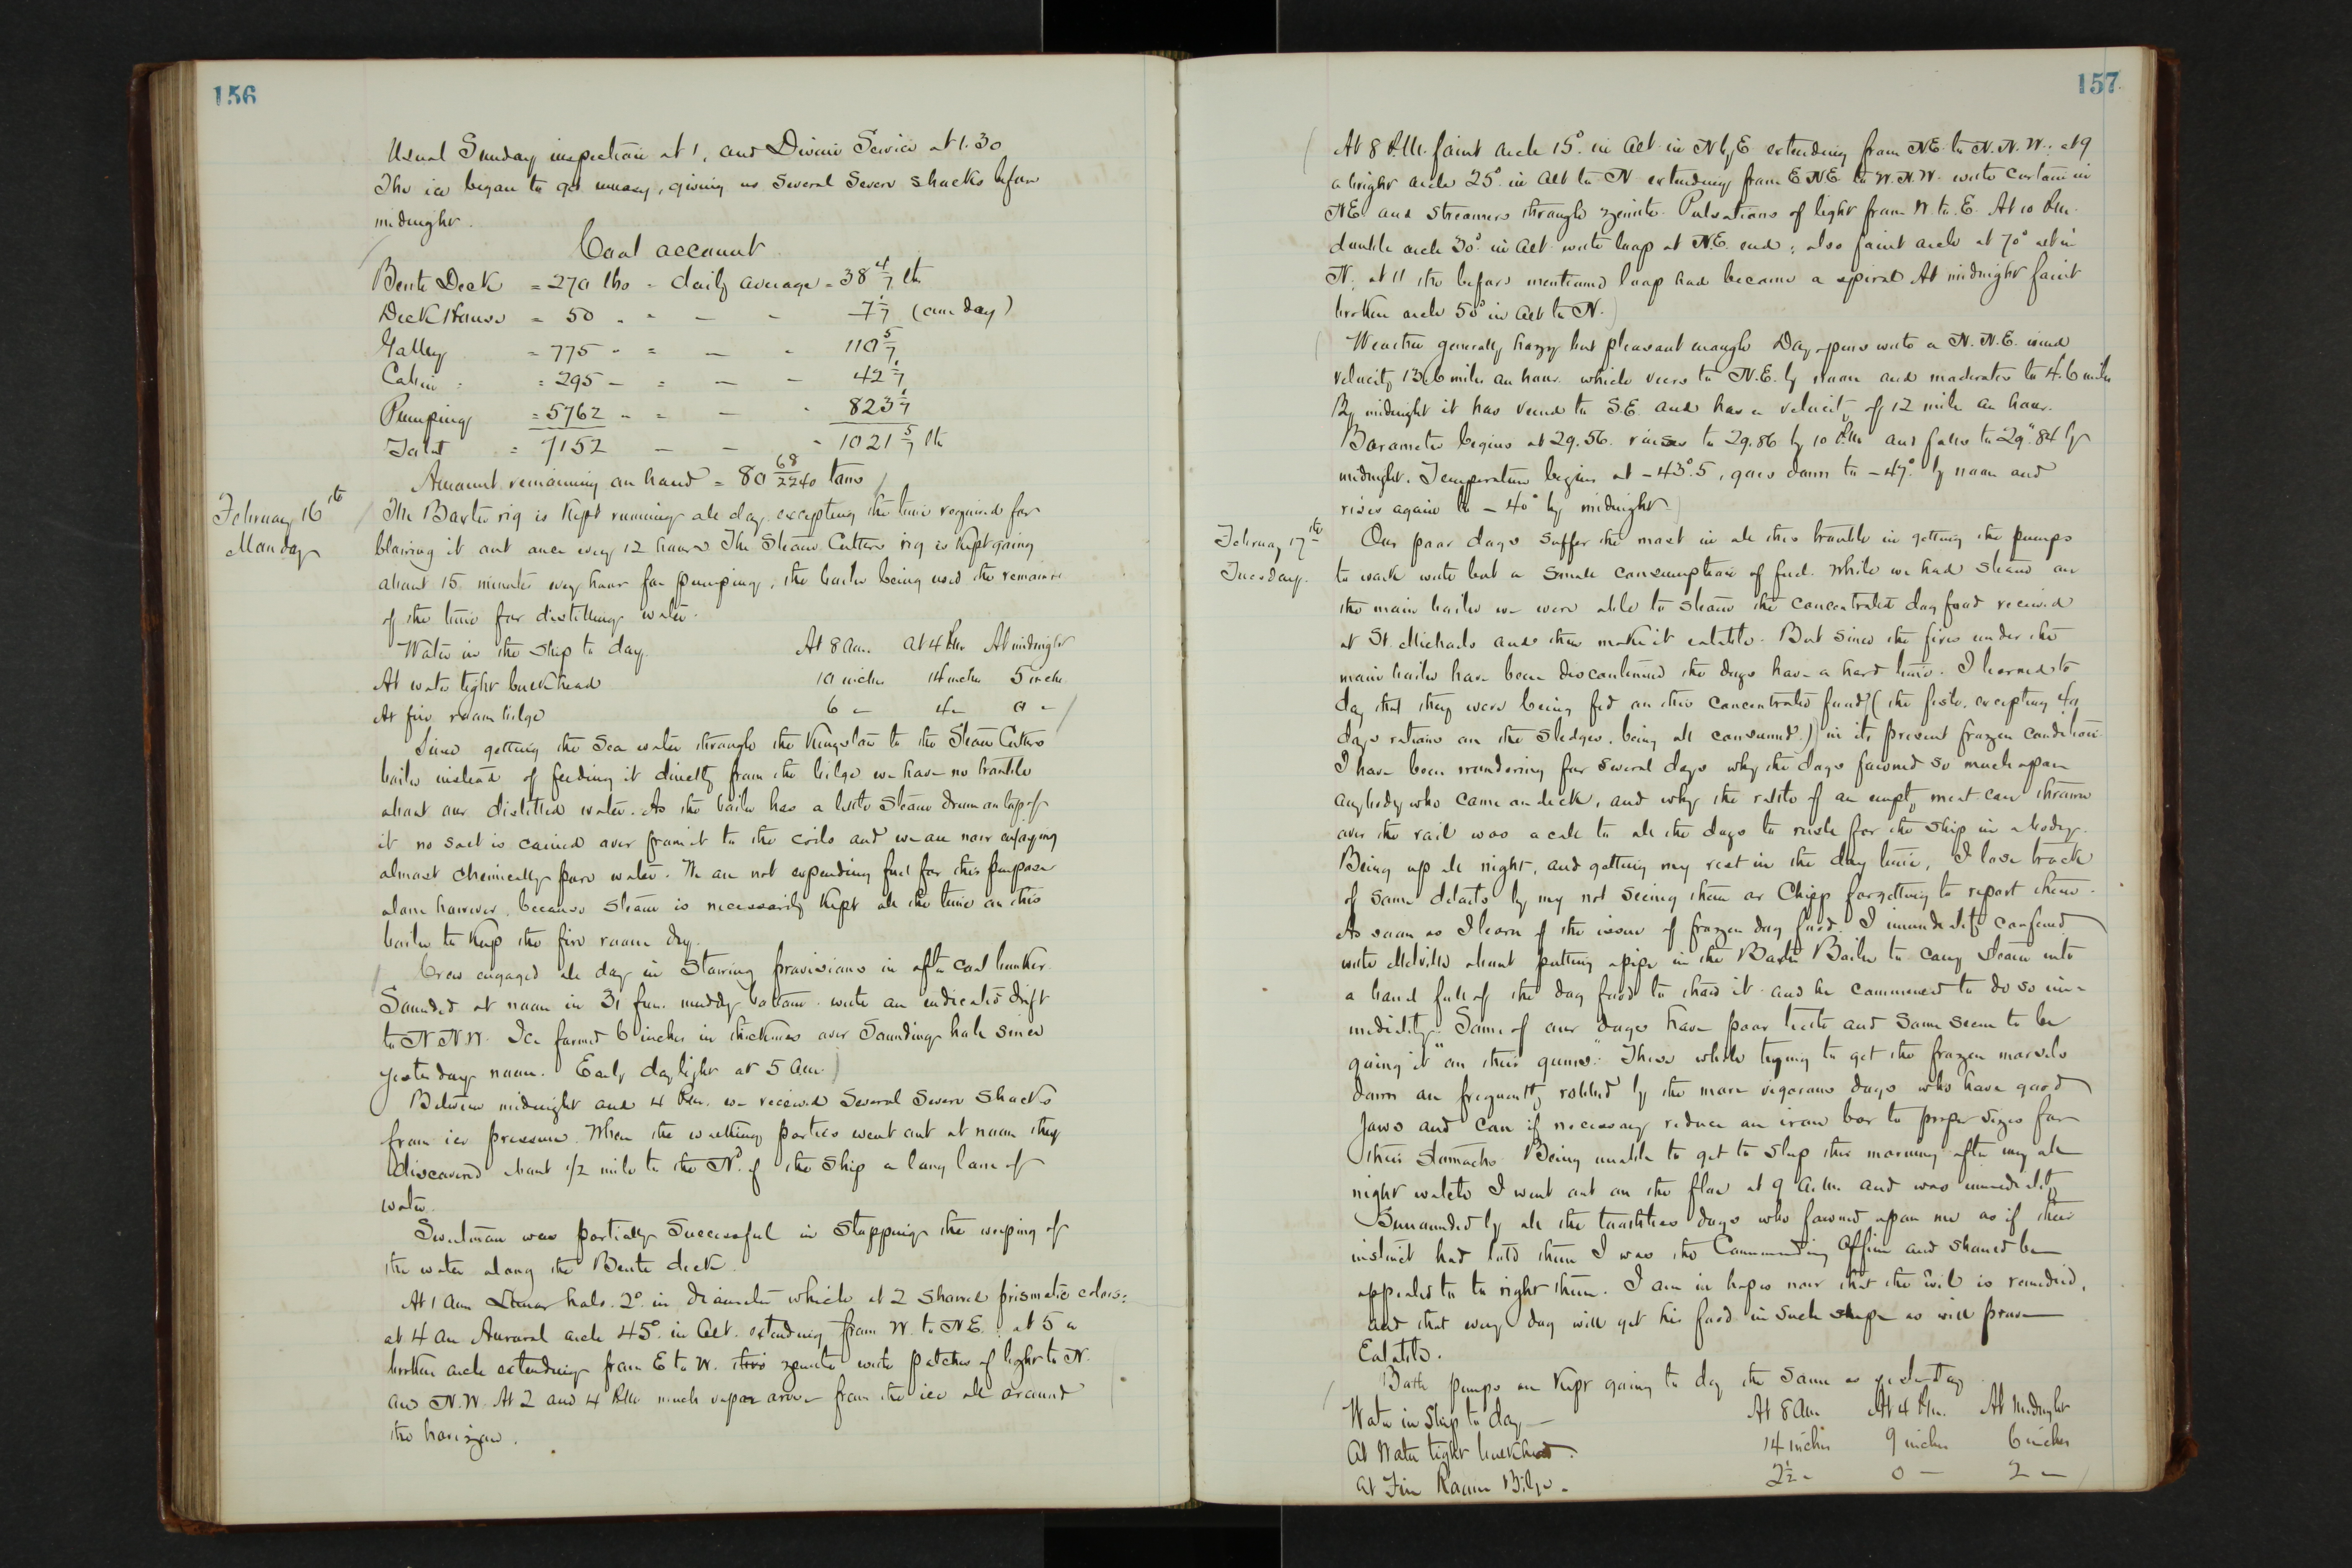 156
Usual Sunday inspection at 1, and Divine Service at 1.30
The ice began to get uneasy, giving us several severe shocks before
midnight.
Coal account
Berth Deck = 270 lbs = daily average = 38 4/7 lbs
Deck House = 50 " " — " 7 1/7 (one day)
Galley = 775 " = — " 110 5/7
Cabin = 295 — = — — 42 1/7
Pumping = 5762 " = — " 823 1/7
Total = 7152 — — " 1021 5/7 lbs
Amount remaining on hand = 80 68/2240 tons
February 16th
Monday
The Baxter rig is kept running all day excepting the time required for
blowing it out once every 12 hours The Steam Cutters rig is kept going
about 15 minutes every hour for pumping, the boiler being used the remainder
of the time for distilling water.
Water in the ship to day. At 8 am. at 4 PM At midnight
At water tight bulkhead 10 inches 14 inches 5 inches
At fire room bilge 6 — 4 — 0 —
Since getting the sea water through the Kingston to the Steam Cutters
boiler instead of feeding it directly from the bilge we have no trouble
about our distilled water. As the boiler has a little steam drum on top of
it no salt is carried over from it to the coils and we are now enjoying
almost chemically pure water. We are not expending fuel for this purpose
alone however, because steam is necessarily kept all the time on this
boiler to keep the fire room dry.
Crew engaged all day in stowing provisions in after coal bunker.
Sounded at noon in 31 fms. muddy bottom. with an indicated drift
to N N W. Ice formed 6 inches in thickness over Sounding hole since
yesterday noon. Early daylight at 5 am.
Between midnight and 4 PM. we received several severe shocks
from ice pressure. When the walking parties went out at noon they
discovered about 1/2 mile to the Nd. of the ship a long lane of
water.
Sweetman was partially successful in stopping the weeping of
the water along the Berth deck.
At 1 am Lunar halo. 2° in diameter which at 2 showed prismatic colors:
at 4 am Auroral arch 45° in alt. extending from W. to NE.: at 5 a
broken arch extending from E to W. thro zenith with patches of light to N.
and N.W. At 2 and 4 PM much vapor arose from the ice all around
the horizon.
157
At 8 P.M. faint arch 15° in alt in N by E extending from NE to N.N.W.: at 9
a bright arch 25° in alt to N extending from E NE to W.N.W. with curtain in
NE and streamers through zenith. Pulsations of light from W. to E. At 10 PM.
double arch 30° in alt with loop at N.E. end: also faint arch at 70° alt in
N. at 11 the before mentioned loop had become a spiral At midnight faint
broken arch 50° in alt to N.
Weather generally hazy but pleasant enough Day opens with a N.N.E. wind
velocity 13.6 miles an hour which veers to N.E. by noon and moderates to 4.6 miles
By midnight it has veered to S.E. and has a velocity of 12 miles an hour.
Barometer begins at 29.56. raises to 29.86 by 10 P.M and falls to 29".84 by
midnight. Temperature begins at -43°.5, goes down to -47° by noon and
rises again to -40° by midnight
February 17th
Tuesday.
Our poor dogs suffer the most in all this trouble in getting the pumps
to work with but a small consumption of fuel. While we had steam on
the main boiler we were able to steam the concentrated dog food received
at St. Michaels and thus make it eatable. But since the fires under the
main boiler have been discontinued the dogs have a hard time. I learned to
day that they were being fed on this concentrated food (the fish, excepting 40
days rations on the sledges, being all consumed.) in its present frozen condition.
I have been wondering for several days why the dogs fawned so much upon
anybody who came on deck, and why the rattle of an empty meat can thrown
over the rail was a call to all the dogs to rush for the ship in a body.
Being up all night, and getting my rest in the day time, I lose track
of some details by my not seeing them or Chipp forgetting to report them.
As soon as I learn of the issue of frozen dog food I immediately confered
with Melville about putting a pipe in the Baxter Boiler to carry steam into
a barrel full of the dog food to thaw it and he commenced to do so im-
mediately. Some of our dogs have poor teeth and some seem to be
going it "on their gums". These while trying to get the frozen morsels
down are frequently robbed by the more vigorous dogs who have good
jaws and can if necessary reduce an iron bar to proper sizes for
their stomachs. Being unable to get to sleep this morning after my all
night watch I went out on the floe at 9 A.M. and was immediately
surrounded by all the toothless dogs who fawned upon me as if their
instinct had told them I was the Commanding Officer and should be
appealed to to right them. I am in hopes now that the evil is remedied,
and that every dog will get his food in such shape as will prove
Eatable.
Both pumps are kept going to day the same as yesterday
Water in Ship to day — At 8 am At 4 P.M. At Midnight
At Water tight bulkhead. 14 inches 9 inches 6 inches
At Fire Room Bilge. 2 1/2 " 0 — 2 —